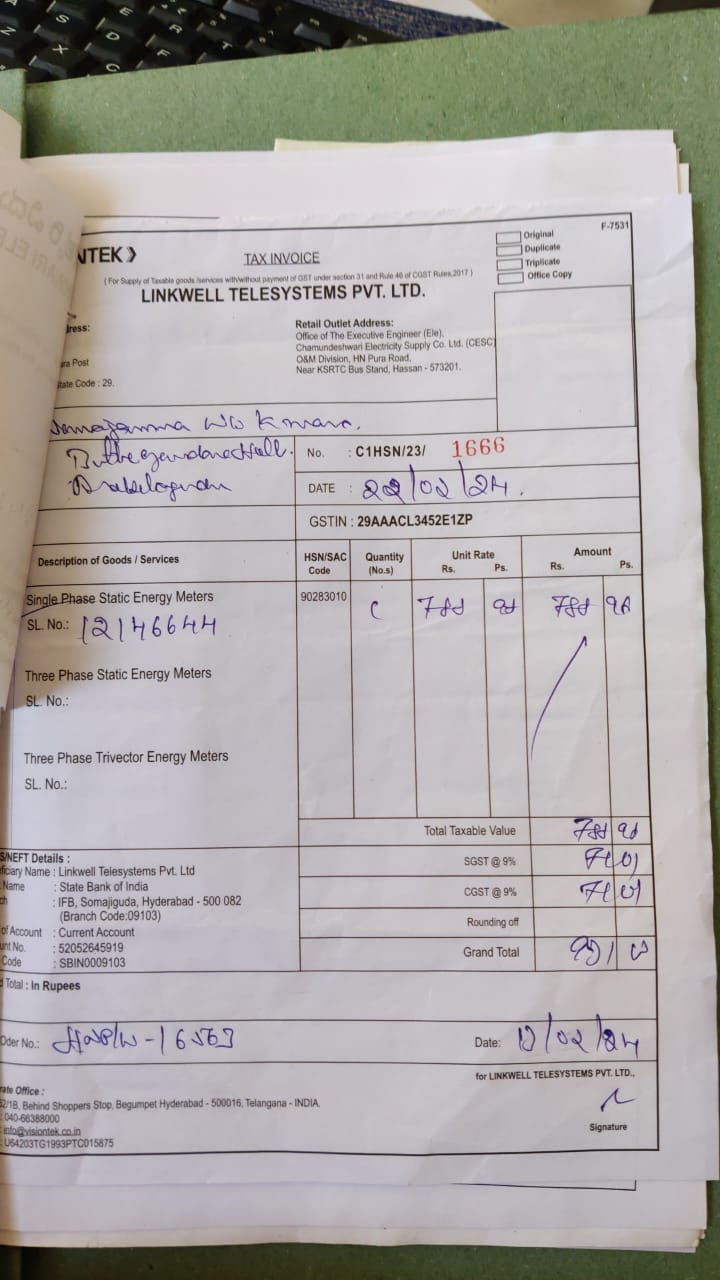 NTEK
TAX INVOICE
F-7531
Original
Duplicate
Triplicate
Office Copy
( For Supply of Taxable goods /services with/without payment of GST under section 31 and Rule 46 of CGST Rules,2017 )
LINKWELL TELESYSTEMS PVT. LTD.
ress:
ra Post
tate Code : 29.
Retail Outlet Address:
Office of The Executive Engineer (Ele),
Chamundeshwari Electricity Supply Co. Ltd. (CESC)
O&M Division, HN Pura Road,
Near KSRTC Bus Stand, Hassan - 573201.
W/o
No. : C1HSN/23/ 1666
DATE : 22/02/24.
GSTIN : 29AAACL3452E1ZP
Description of Goods / Services HSN/SAC Code Quantity (No.s) Unit Rate Rs. Ps. Amount Rs. Ps.
Single Phase Static Energy Meters 90283010
SL. No.: 12146644
Three Phase Static Energy Meters
SL. No.:
Three Phase Trivector Energy Meters
SL. No.:
Total Taxable Value
SGST @ 9% 71 01
CGST @ 9% 71 01
Rounding off
Grand Total
S/NEFT Details :
ficiary Name : Linkwell Telesystems Pvt. Ltd
Name : State Bank of India
ch : IFB, Somajiguda, Hyderabad - 500 082
(Branch Code:09103)
of Account : Current Account
unt No. : 52052645919
Code : SBIN0009103
Total : In Rupees
Oder No.:
Date: /02/24
for LINKWELL TELESYSTEMS PVT. LTD.,
Signature
rate Office :
2/1B, Behind Shoppers Stop, Begumpet Hyderabad - 500016, Telangana - INDIA.
: 040-66388000
: info@visiontek.co.in
: U64203TG1993PTC015875